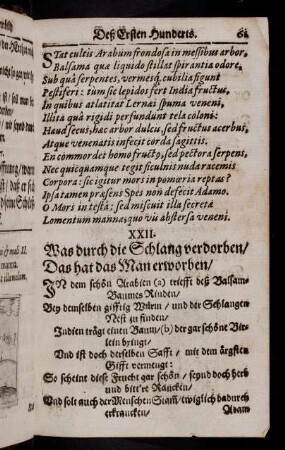 Deß Ersten Hunderts. 61
STat cultis Arabum frondosa in messibus arbor,
Balsama quæ liquido stillat spirantia odore.
Sub quâ serpentes, vermesq; cubilia figunt
Pestiferi: tum sic lepidos fert India fructus,
In quibus atlatitat Lernai spuma veneni,
Illita quâ rigidi perfundunt tela coloni:
Haud secus, hac arbor dulcis, sed fructus acerbus,
Atque venenatis infecit corda sagittis.
En commordet homo fructũ, sed pectora serpens,
Nec quicquamque tegit ficulnis nuda racemis
Corpora: sic igitur mors in pomæria reptas?
Ipsa tamen præsens Spes non defecit Adamo.
O Mors in testâ: sed miscuit illa secreta
Lomentum manna, quo vis abstersa veneni.
XXII.
Was durch die Schlang verdorben/
Das hat das Man erworben/
IN dem schön Arabien (a) triefft deß Balsam-
Baumes Rinden/
Bey demselben gifftig Würm / und der Schlangen
Nest zu finden/
Indien trägt einen Baum/ (b) der gar schöne Bir-
lein bringt/
Und ist doch derselben Safft / mit dem ärgsten
Gifft vermengt:
So scheint diese Frucht gar schön / seynd doch herb
und bitt're Rancken/
Und solt auch der Menschen Stam̃/ ewiglich dadurch
erkrancken/
Adam